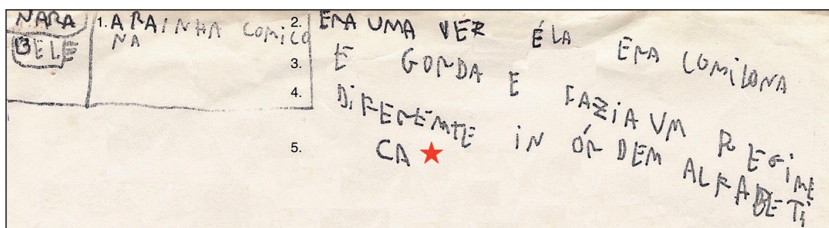 NARA
BELE
1. A RAiNHA COMiLO
NA
2. ERA UMA VEZ ÉLA ERA COMILONA
3. E GORDA E FAZIA UM REGiME
4. DiFEREMTE iN ÓRDEM ALFABETi
5. CA